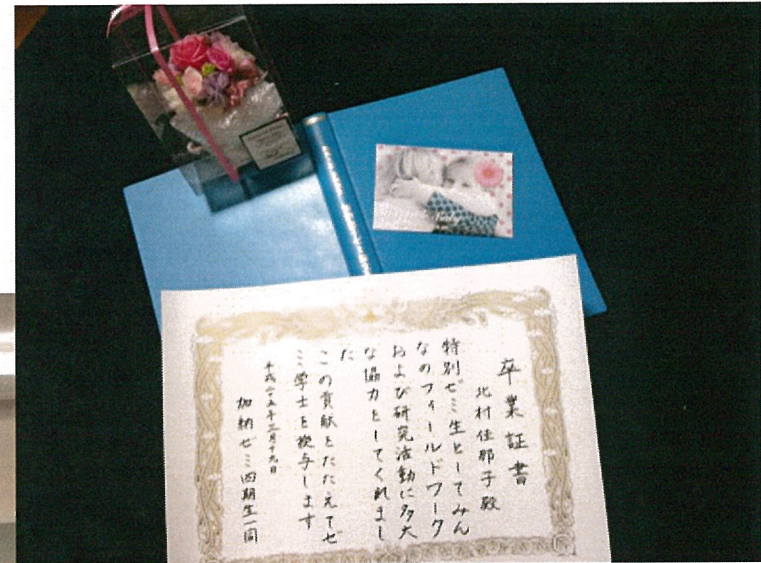 卒業証書
北村佳那子殿
特別ゼミ生としてみん
なのフィールドワーク
および研究活動に多大
な協力をしてくれまし
た
この貢献をたたえてゼ
ミ学士を授与します
平成二十五年三月十九日
加納ゼミ四期生一同